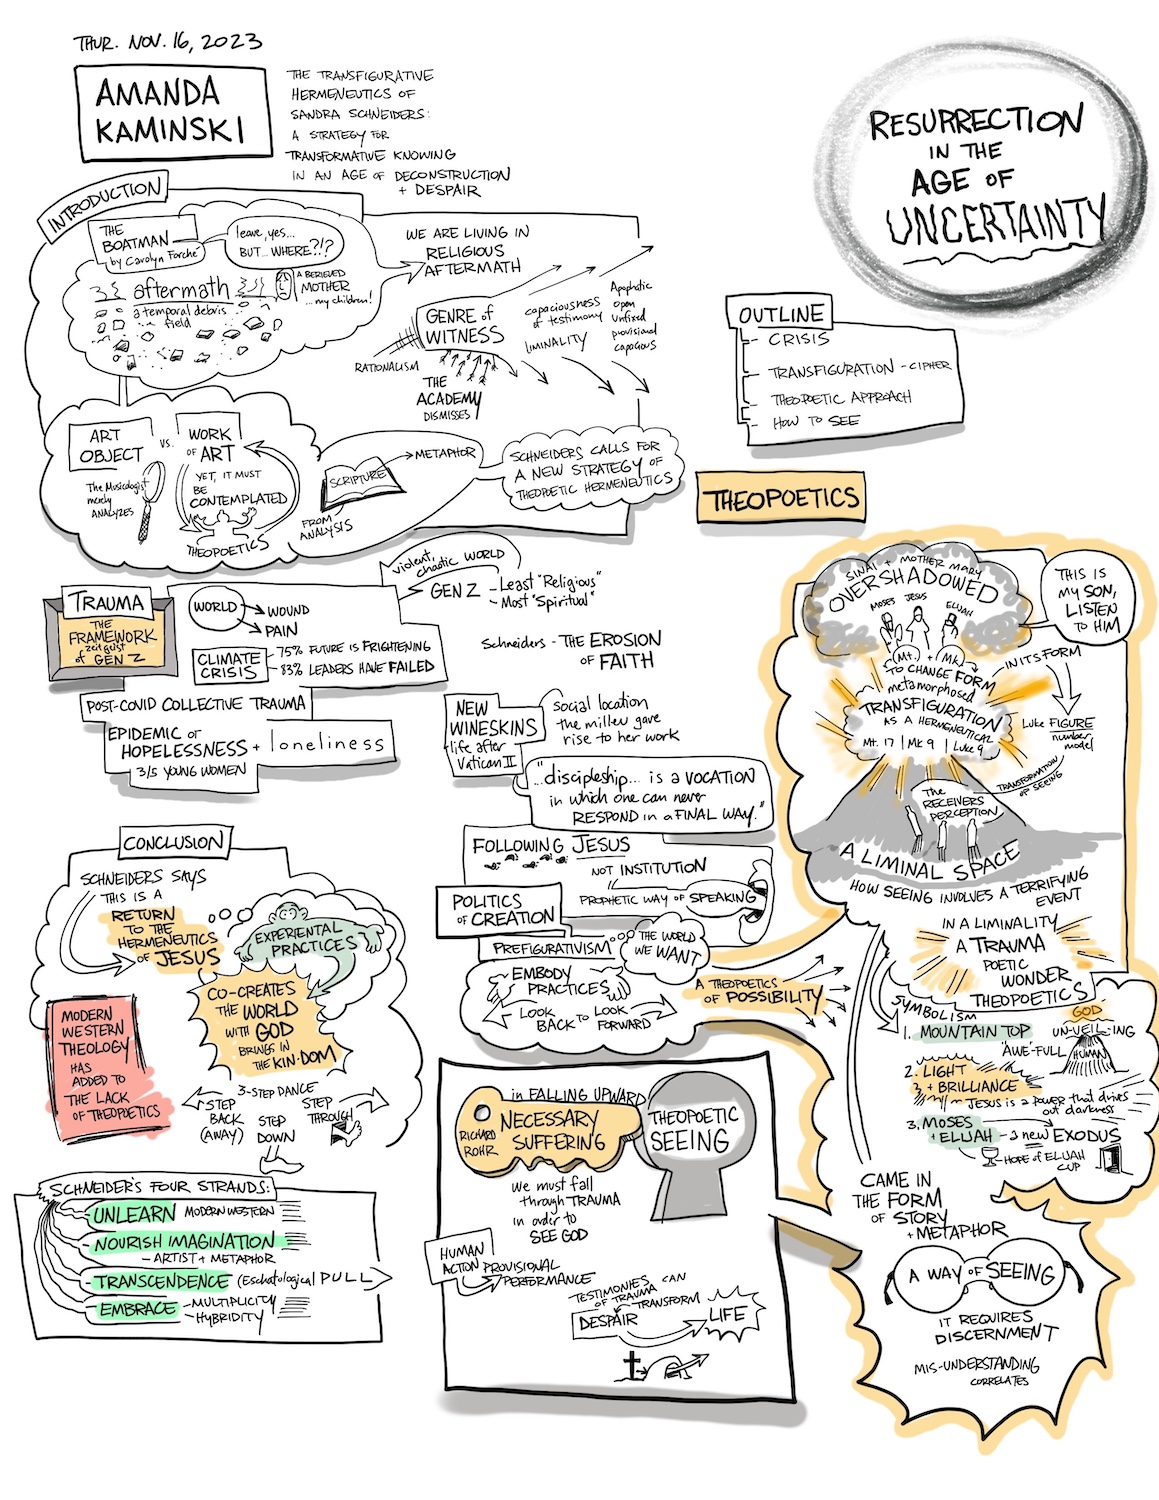 THUR. NOV. 16, 2023
AMANDA
KAMINSKI
THE TRANSFIGURATIVE
HERMENEUTICS OF
SANDRA SCHNEIDERS:
A STRATEGY FOR
TRANSFORMATIVE KNOWING
IN AN AGE OF DECONSTRUCTION
+ DESPAIR
RESURRECTION
IN THE
AGE OF
UNCERTAINTY
INTRODUCTION
THE
BOATMAN
by Carolyn Forché
leave, yes...
BUT... WHERE?!?
aftermath
a temporal debris
field
A BERIEVED
MOTHER
...my children!
WE ARE LIVING IN
RELIGIOUS
AFTERMATH
GENRE of
WITNESS
RATIONALISM
THE
ACADEMY
DISMISSES
capaciousness
of testimony
LIMINALITY
Apophatic
open
Unfixed
provisional
capacious
OUTLINE
CRISIS
TRANSFIGURATION - CIPHER
THEOPOETIC APPROACH
HOW TO SEE
ART
OBJECT
VS.
WORK
OF ART
The Musicologist
merely
ANALYZES
YET, IT MUST
BE
CONTEMPLATED
THEOPOETICS
SCRIPTURE
METAPHOR
FROM
ANALYSIS
SCHNEIDERS CALLS FOR
A NEW STRATEGY OF
THEOPOETIC HERMENEUTICS
THEOPOETICS
TRAUMA
THE
FRAMEWORK
zeitgeist
of GEN Z
WORLD
WOUND
PAIN
CLIMATE
CRISIS
75% FUTURE IS FRIGHTENING
83% LEADERS HAVE FAILED
violent,
chaotic WORLD
GEN Z
- Least "Religious"
- Most "Spiritual"
POST-COVID COLLECTIVE TRAUMA
EPIDEMIC OF
HOPELESSNESS + loneliness
3/5 YOUNG WOMEN
Schneiders - THE EROSION
OF FAITH
NEW
WINESKINS
life after
Vatican II
social location
the milleu gave
rise to her work
"...discipleship... is a VOCATION
in which one can never
RESPOND in a FINAL WAY."
FOLLOWING JESUS
NOT INSTITUTION
PROPHETIC WAY OF SPEAKING
POLITICS
OF CREATION
PREFIGURATIVISM
THE WORLD
WE WANT
EMBODY
PRACTICES
LOOK
BACK TO LOOK
FORWARD
A THEOPOETICS
OF POSSIBILITY
SINAI + MOTHER MARY
OVERSHADOWED
MOSES JESUS ELIJAH
THIS IS
MY SON,
LISTEN
TO HIM
Mt. + Mk.
TO CHANGE FORM
metamorphosed
IN ITS FORM
TRANSFIGURATION
AS A HERMENEUTICAL
Mt. 17 | Mk 9 | Luke 9
Luke FIGURE
number
model
TRANSFORMATION
OF SEEING
The
RECEIVERS
PERCEPTION
A LIMINAL SPACE
HOW SEEING INVOLVES A TERRIFYING
EVENT
IN A LIMINALITY
A TRAUMA
POETIC
WONDER
THEOPOETICS
SYMBOLISM
1. MOUNTAIN TOP
"AWE"-FULL
GOD
UN-VEIL-ING
HUMAN
2. LIGHT
+ BRILLIANCE
JESUS is a power that drives
out darkness
3. MOSES
+ ELIJAH - a new EXODUS
- HOPE of ELIJAH
CUP
CAME IN
THE FORM
OF STORY
+ METAPHOR
A WAY OF SEEING
IT REQUIRES
DISCERNMENT
MIS-UNDERSTANDING
CORRELATES
CONCLUSION
SCHNEIDERS SAYS
THIS IS A
RETURN
TO THE
HERMENEUTICS
OF JESUS
EXPERIENTAL
PRACTICES
CO-CREATES
THE WORLD
WITH GOD
BRINGS IN
THE KIN-DOM
MODERN
WESTERN
THEOLOGY
HAS
ADDED TO
THE LACK
OF THEOPOETICS
3-STEP DANCE
STEP
BACK
(AWAY)
STEP
DOWN
STEP
THROUGH
SCHNEIDER'S FOUR STRANDS:
UNLEARN MODERN WESTERN
NOURISH IMAGINATION
- ARTIST + METAPHOR
TRANSCENDENCE (Eschatological PULL
EMBRACE - MULTIPLICITY
- HYBRIDITY
in FALLING UPWARD
RICHARD
ROHR
NECESSARY
SUFFERING
THEOPOETIC
SEEING
we must fall
through TRAUMA
in order to
SEE GOD
HUMAN
ACTON
PROVISIONAL
PERFORMANCE
TESTIMONIES CAN
OF TRAUMA
TRANSFORM
DESPAIR
LIFE